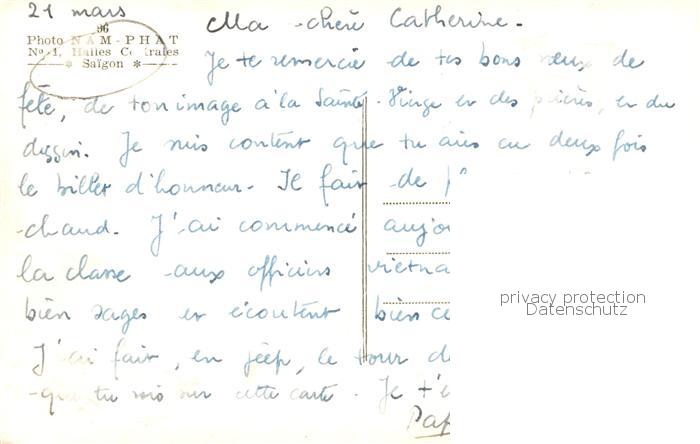 21 mars
96
Photo NAM-PHAT
No 1, Halles Centrales
* Saïgon *
Ma chère Catherine.
Je te remercie de tes bons vœux de
fête, de ton image à la Sainte Vierge et des prières, et du
dessin. Je suis content que tu aies eu deux fois
le billet d'honneur. Il fait de p
chaud. J'ai commencé aujo
la classe aux officiers vietna
bien sages et écoutent bien ce
J'ai fait, en jeep, le tour d
que tu vois sur cette carte. Je t'e
Pap
privacy protection
Datenschutz